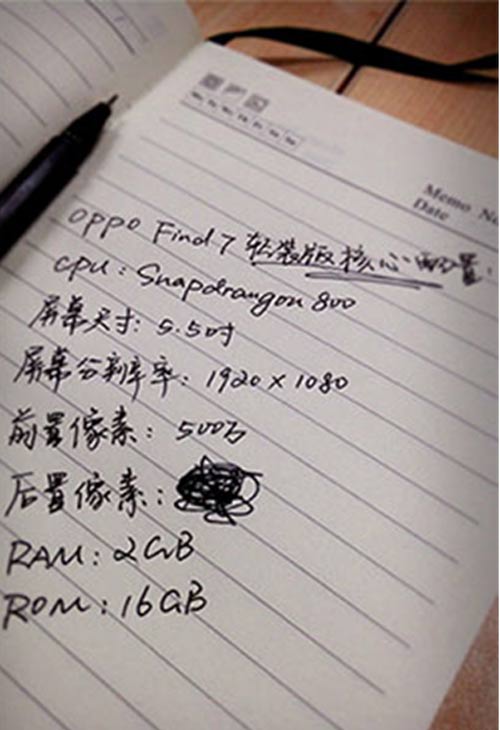 Mo Tu We Th Fr Sa Su
Memo No.
Date
OPPO Find 7 轻装版核心配置:
CPU: Snapdraugon 800
屏幕尺寸: 5.5吋
屏幕分辨率: 1920 × 1080
前置像素: 500万
后置像素:
RAM: 2GB
ROM: 16GB